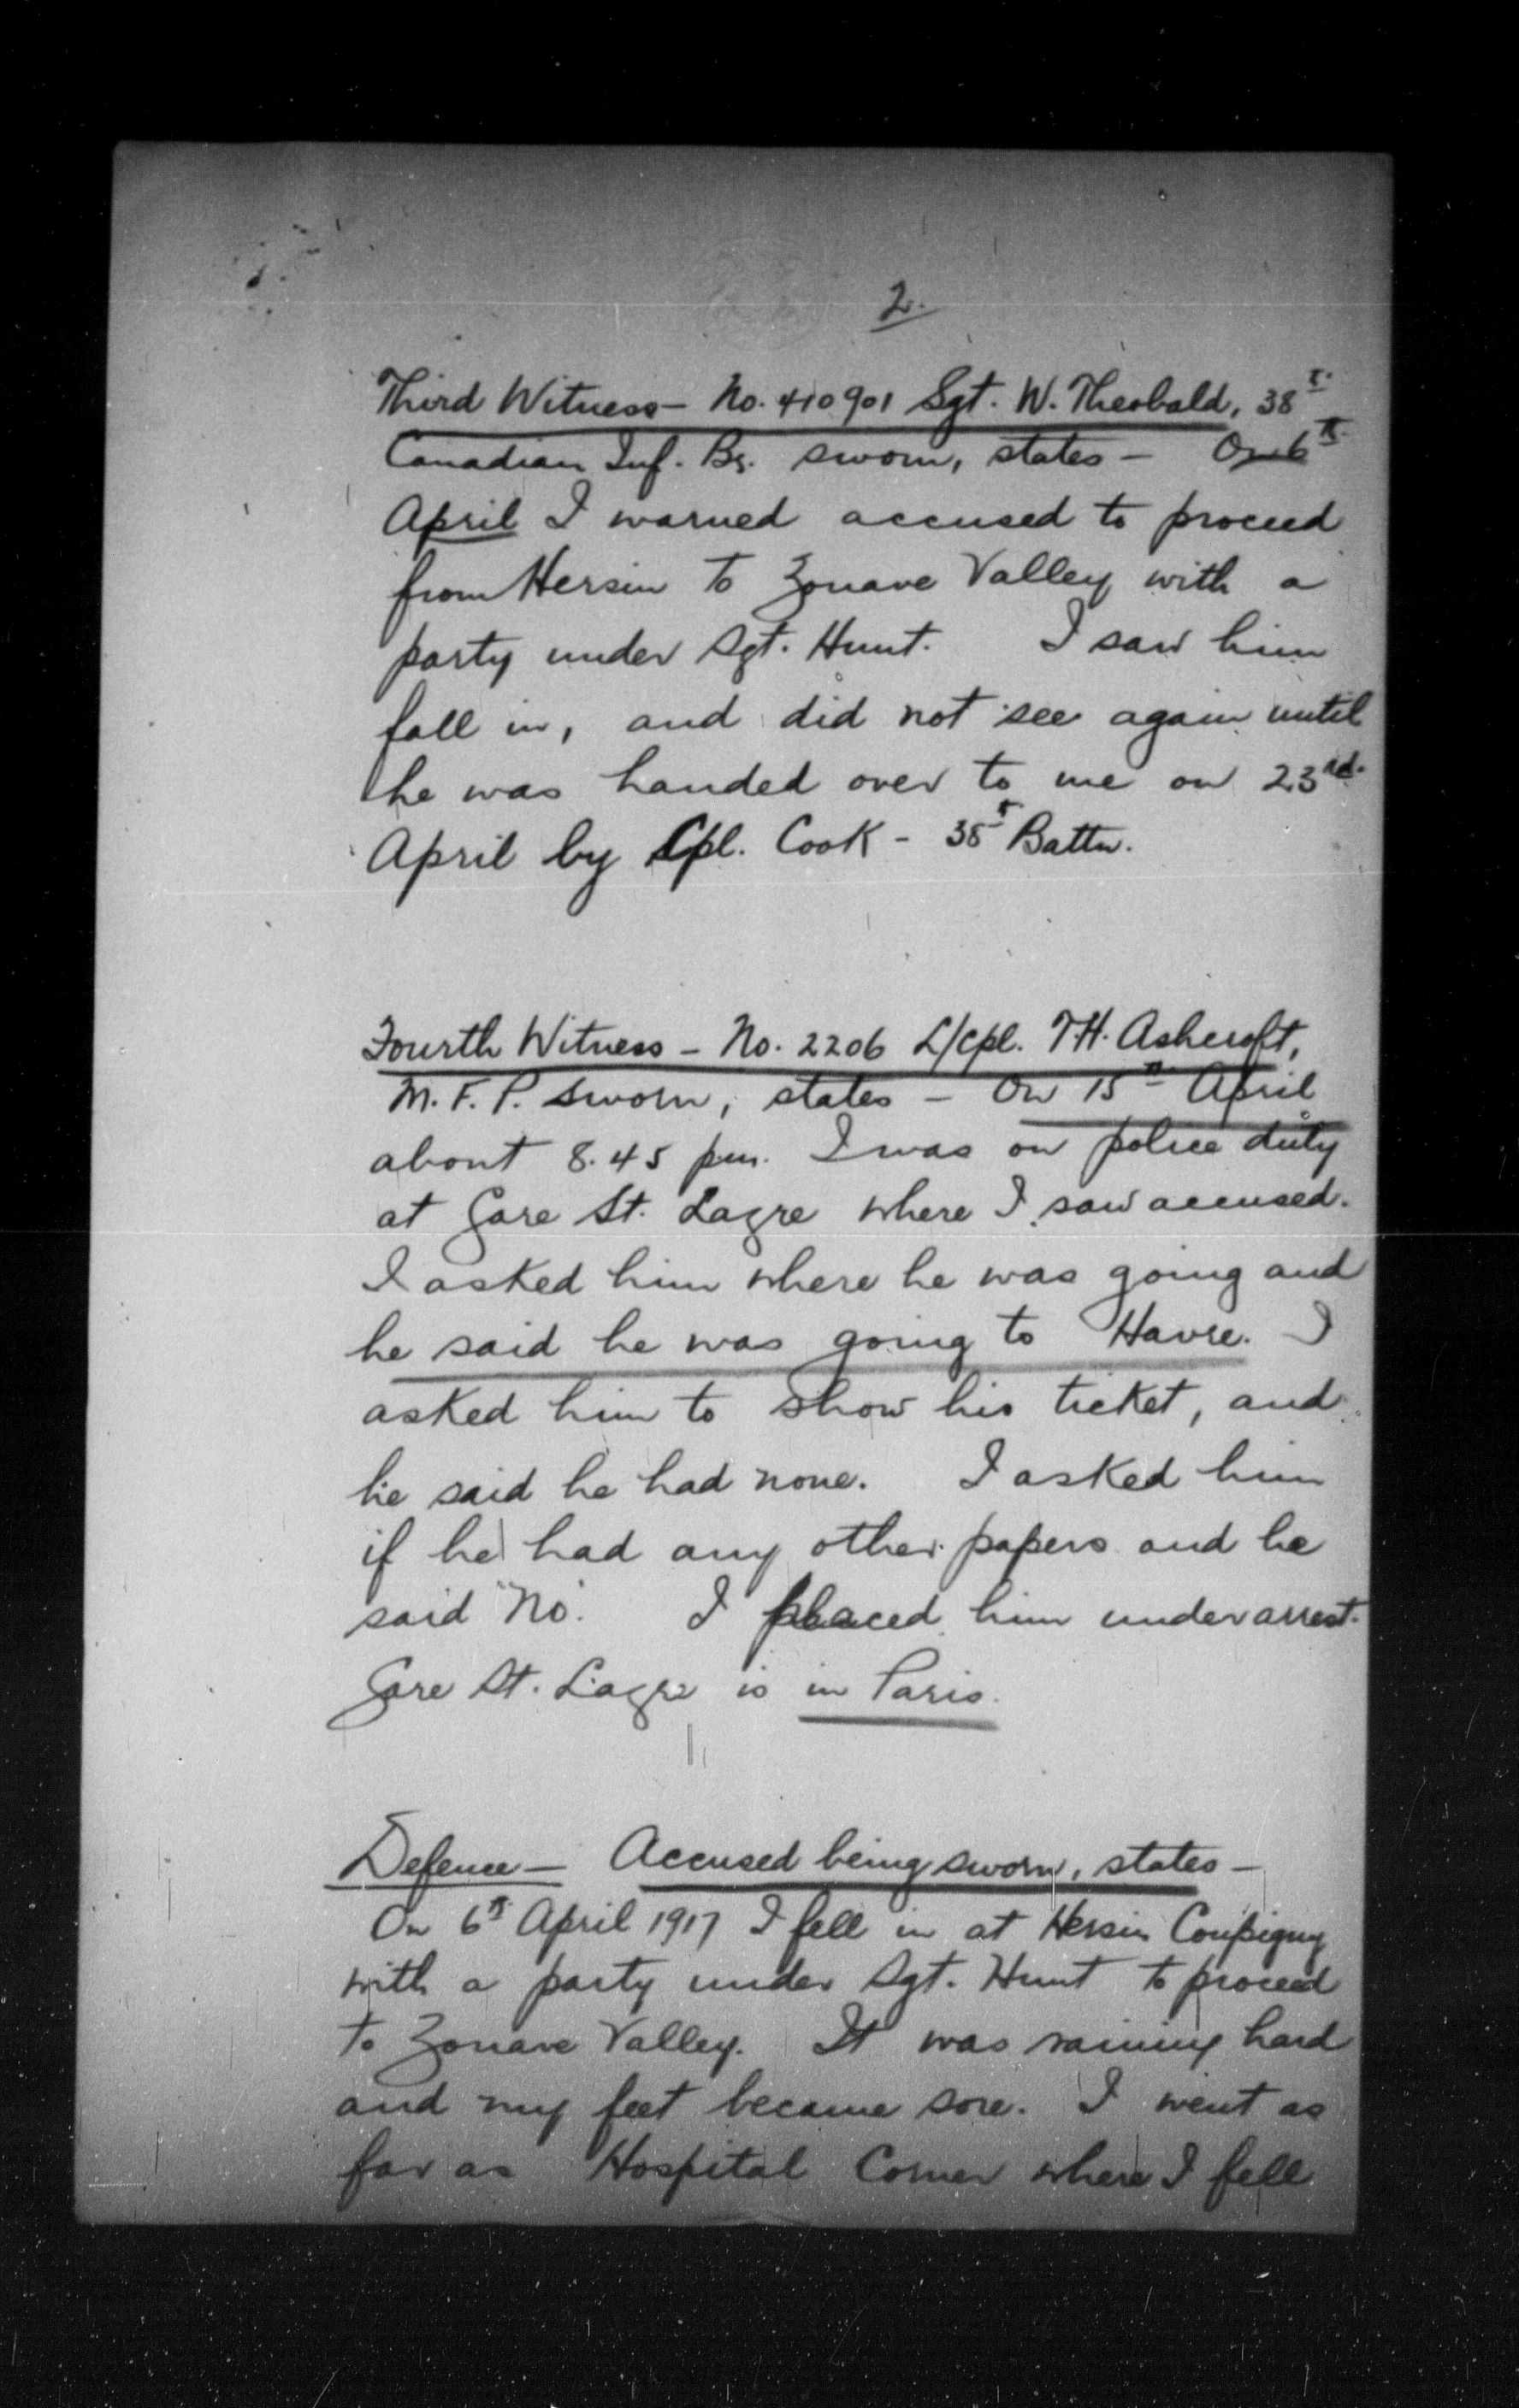 2.
Third Witness - No. 410901 Sgt. W. Theobald, 38th
Canadian Inf. Bn. sworn, states - On 6th
April I warned accused to proceed
from Hersin to Zouave Valley with a
party under Sgt. Hunt. I saw him
fall in, and did not see again until
he was handed over to me on 23rd.
April by Cpl. Cook - 38th Battn.
Fourth Witness - No. 2206 L/Cpl. T.H. Ashcroft,
M.F.P. sworn, states - On 15th April
about 8.45 pm. I was on police duty
at Gare St. Lazre where I saw accused.
I asked him where he was going and
he said he was going to Havre. I
asked him to show his ticket, and
he said he had none. I asked him
if he had any other papers and he
said "No". I placed him under arrest.
Gare St. Lazre is in Paris.
Defence - Accused being sworn, states -
On 6th April 1917 I fell in at Hersin Coupigny
with a party under Sgt. Hunt to proceed
to Zouave Valley. It was raining hard
and my feet became sore. I went as
far as Hospital Corner where I fell